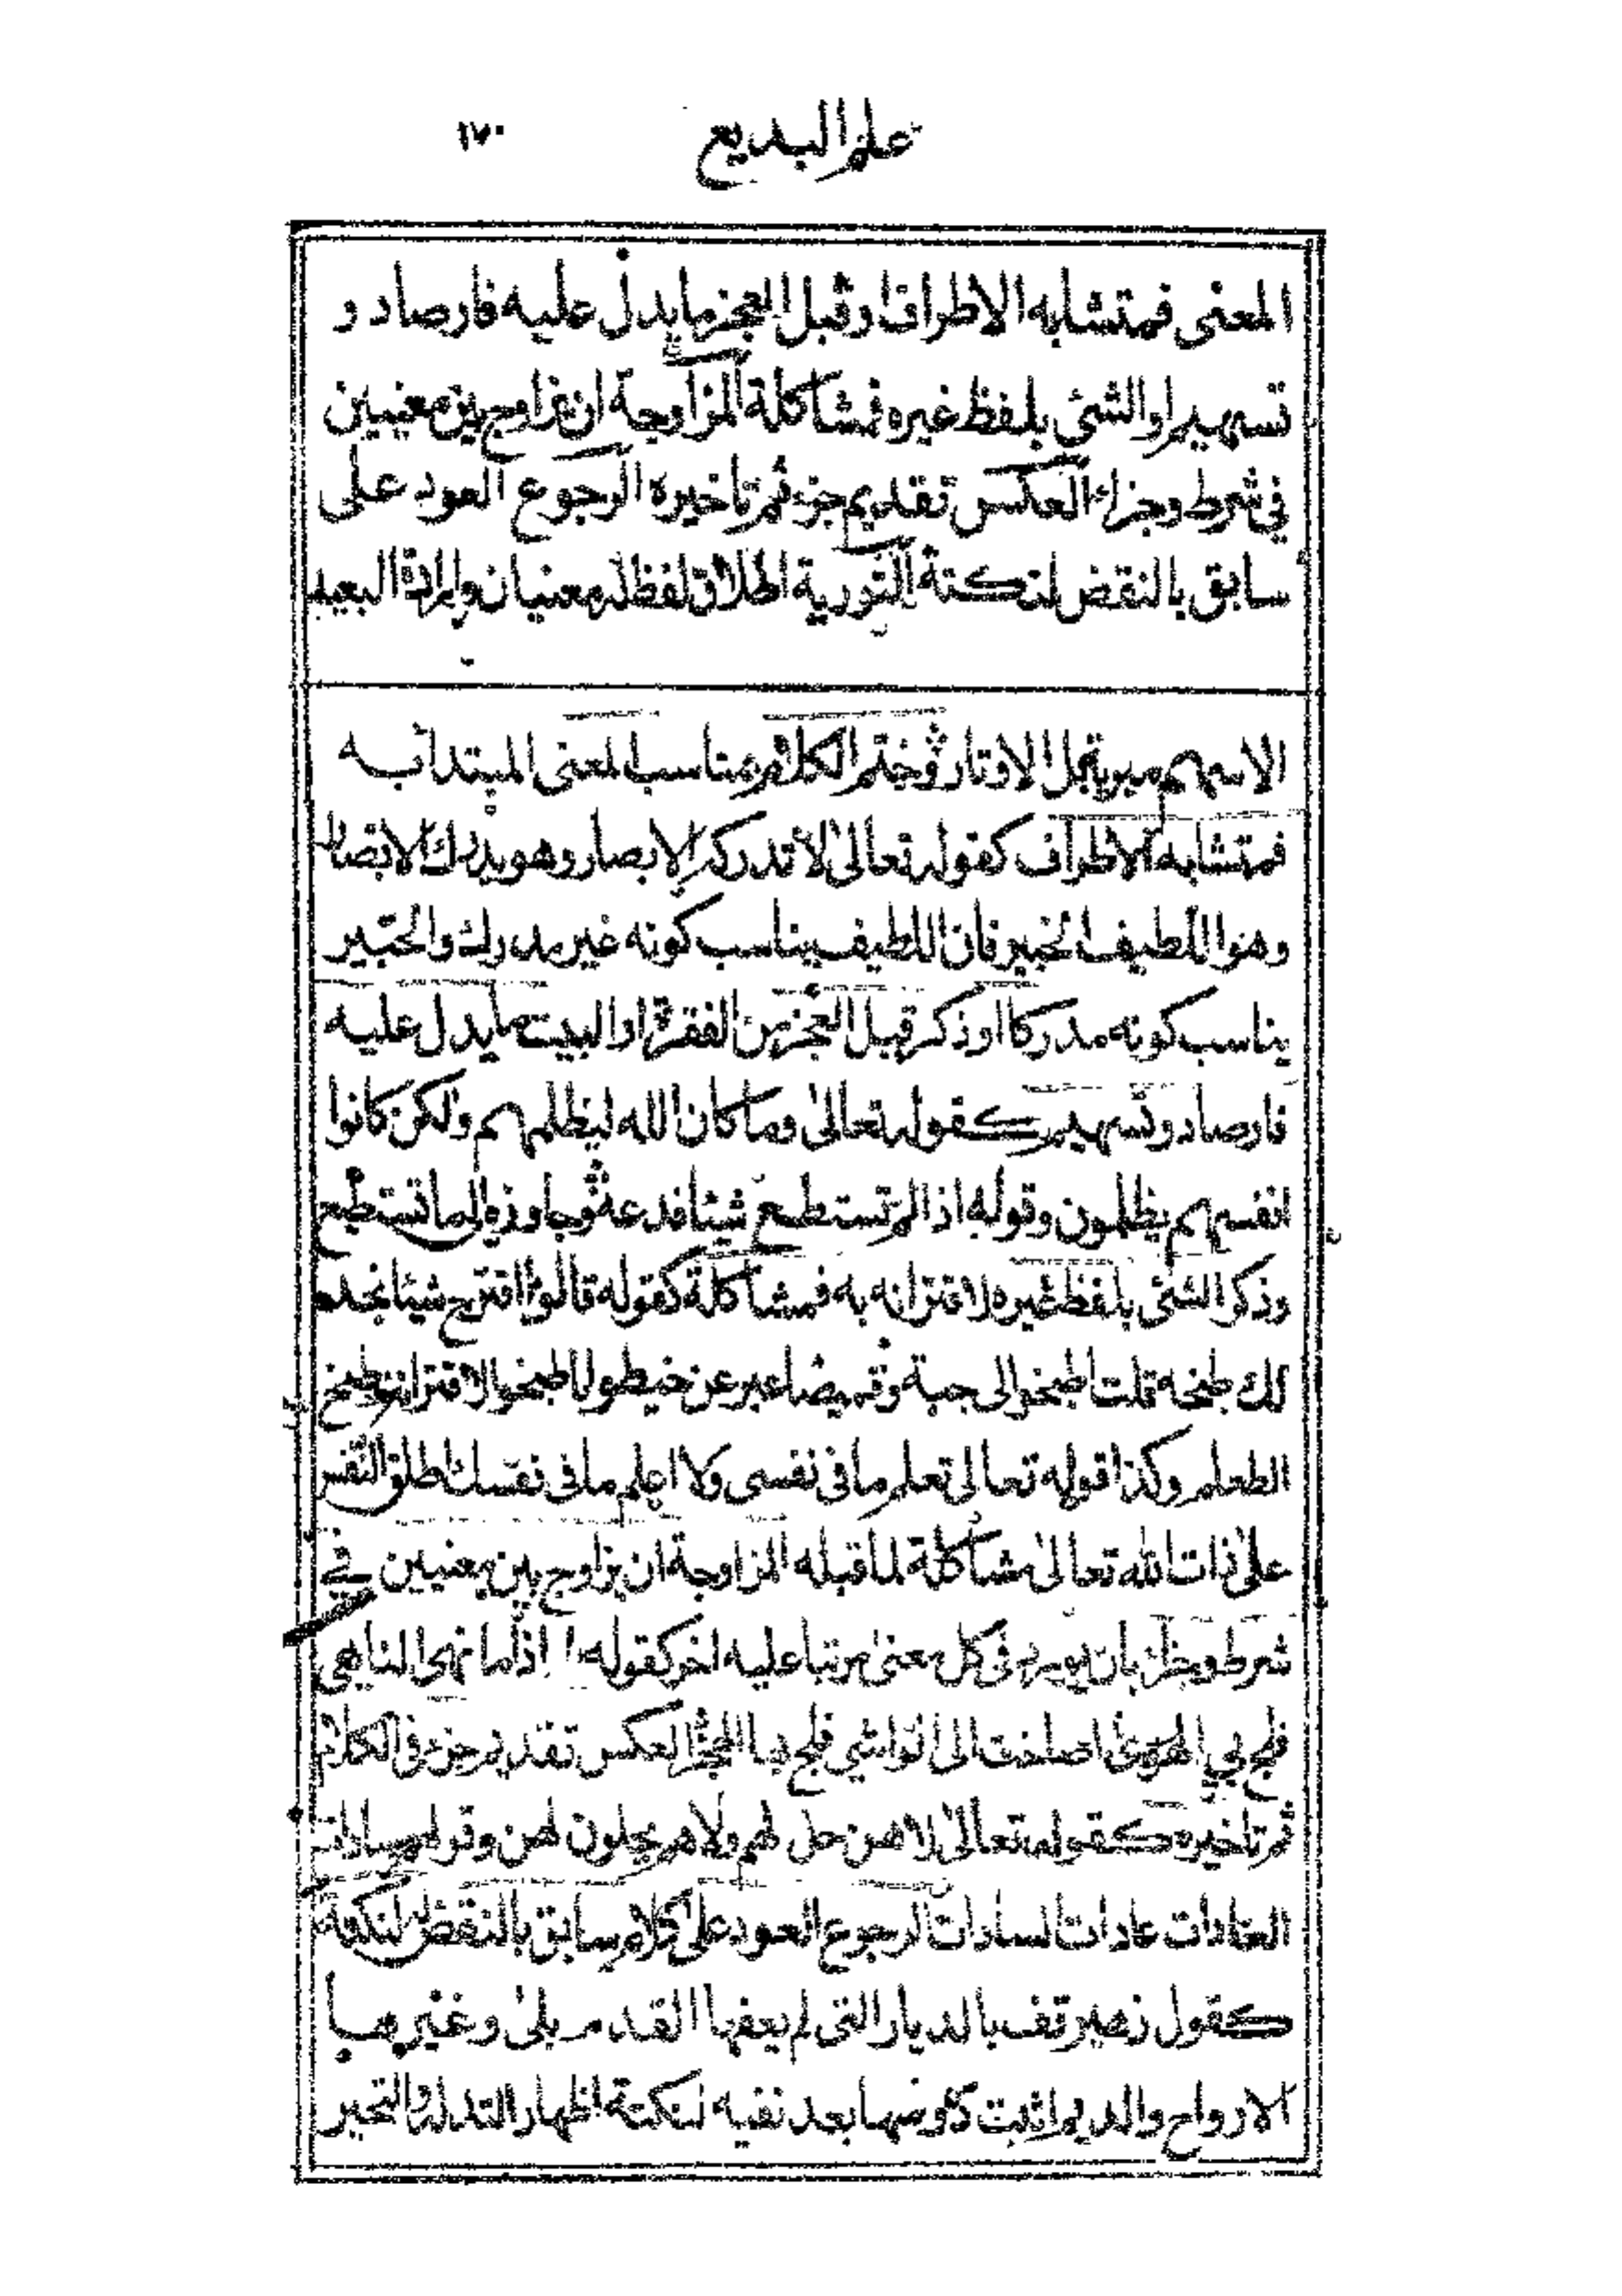 علم البديع ١٧٠
المعنى فمتشابه الاطراف او قبل العجز ما يدل عليه فارصاد و
تسهيم او الشئ بلفظ غيره فمشاكلة المزاوجة ان يزاوج بين معنيين
في شرط وجزاء العكس تقديم جزء ثم تاخيره الرجوع العود على
سابق بالنقض لنكتة التورية اطلاق لفظ له معنيان وارادة البعيد
الاسهم مبرية بل الاوتار وختم الكلام بمناسب المعنى المبتدأ به
فمتشابه الاطراف كقوله تعالى لا تدركه الابصار وهو يدرك الابصار
وهو اللطيف الخبير فان اللطيف يناسب كونه غير مدرك والخبير
يناسب كونه مدركا او ذكر قبل العجز من الفقرة او البيت ما يدل عليه
فارصاد وتسهيم كقوله تعالى وما كان الله ليظلمهم ولكن كانوا
انفسهم يظلمون وقوله اذا لم تستطع شيئا فدعه وجاوزه الى ما تستطيع
وذكر الشئ بلفظ غيره لاقترانه به فمشاكلة كقوله قالوا اقترح شيئا نجد
لك طبخه قلت اطبخوا لى جبة وقميصا عبر عن خيطوا باطبخوا لاقترانه بطبخ
الطعام وكذا قوله تعالى تعلم ما فى نفسى ولا اعلم ما فى نفسك اطلق النفس
على ذات الله تعالى مشاكلة لما قبله المزاوجة ان يزاوج بين معنيين في
شرط وجزاء بان يورد فى كل معنى مرتبا عليه اخر كقوله اذا ما نهى الناهي
فلج بي الهوى اصاخت الى الواشي فلج بها الهجر العكس تقديم جزء فى الكلام
ثم تاخيره كقوله تعالى لا هن حل لهم ولا هم يحلون لهن وقولهم سادات
العادات عادات السادات الرجوع العود على كلام سابق بالنقض له لنكتة
كقول زهير قف بالديار التى لم يعفها القدم بلى وغيرها
الارواح والديم اثبت دروسها بعد نفيه لنكتة اظهار التدله والتحير